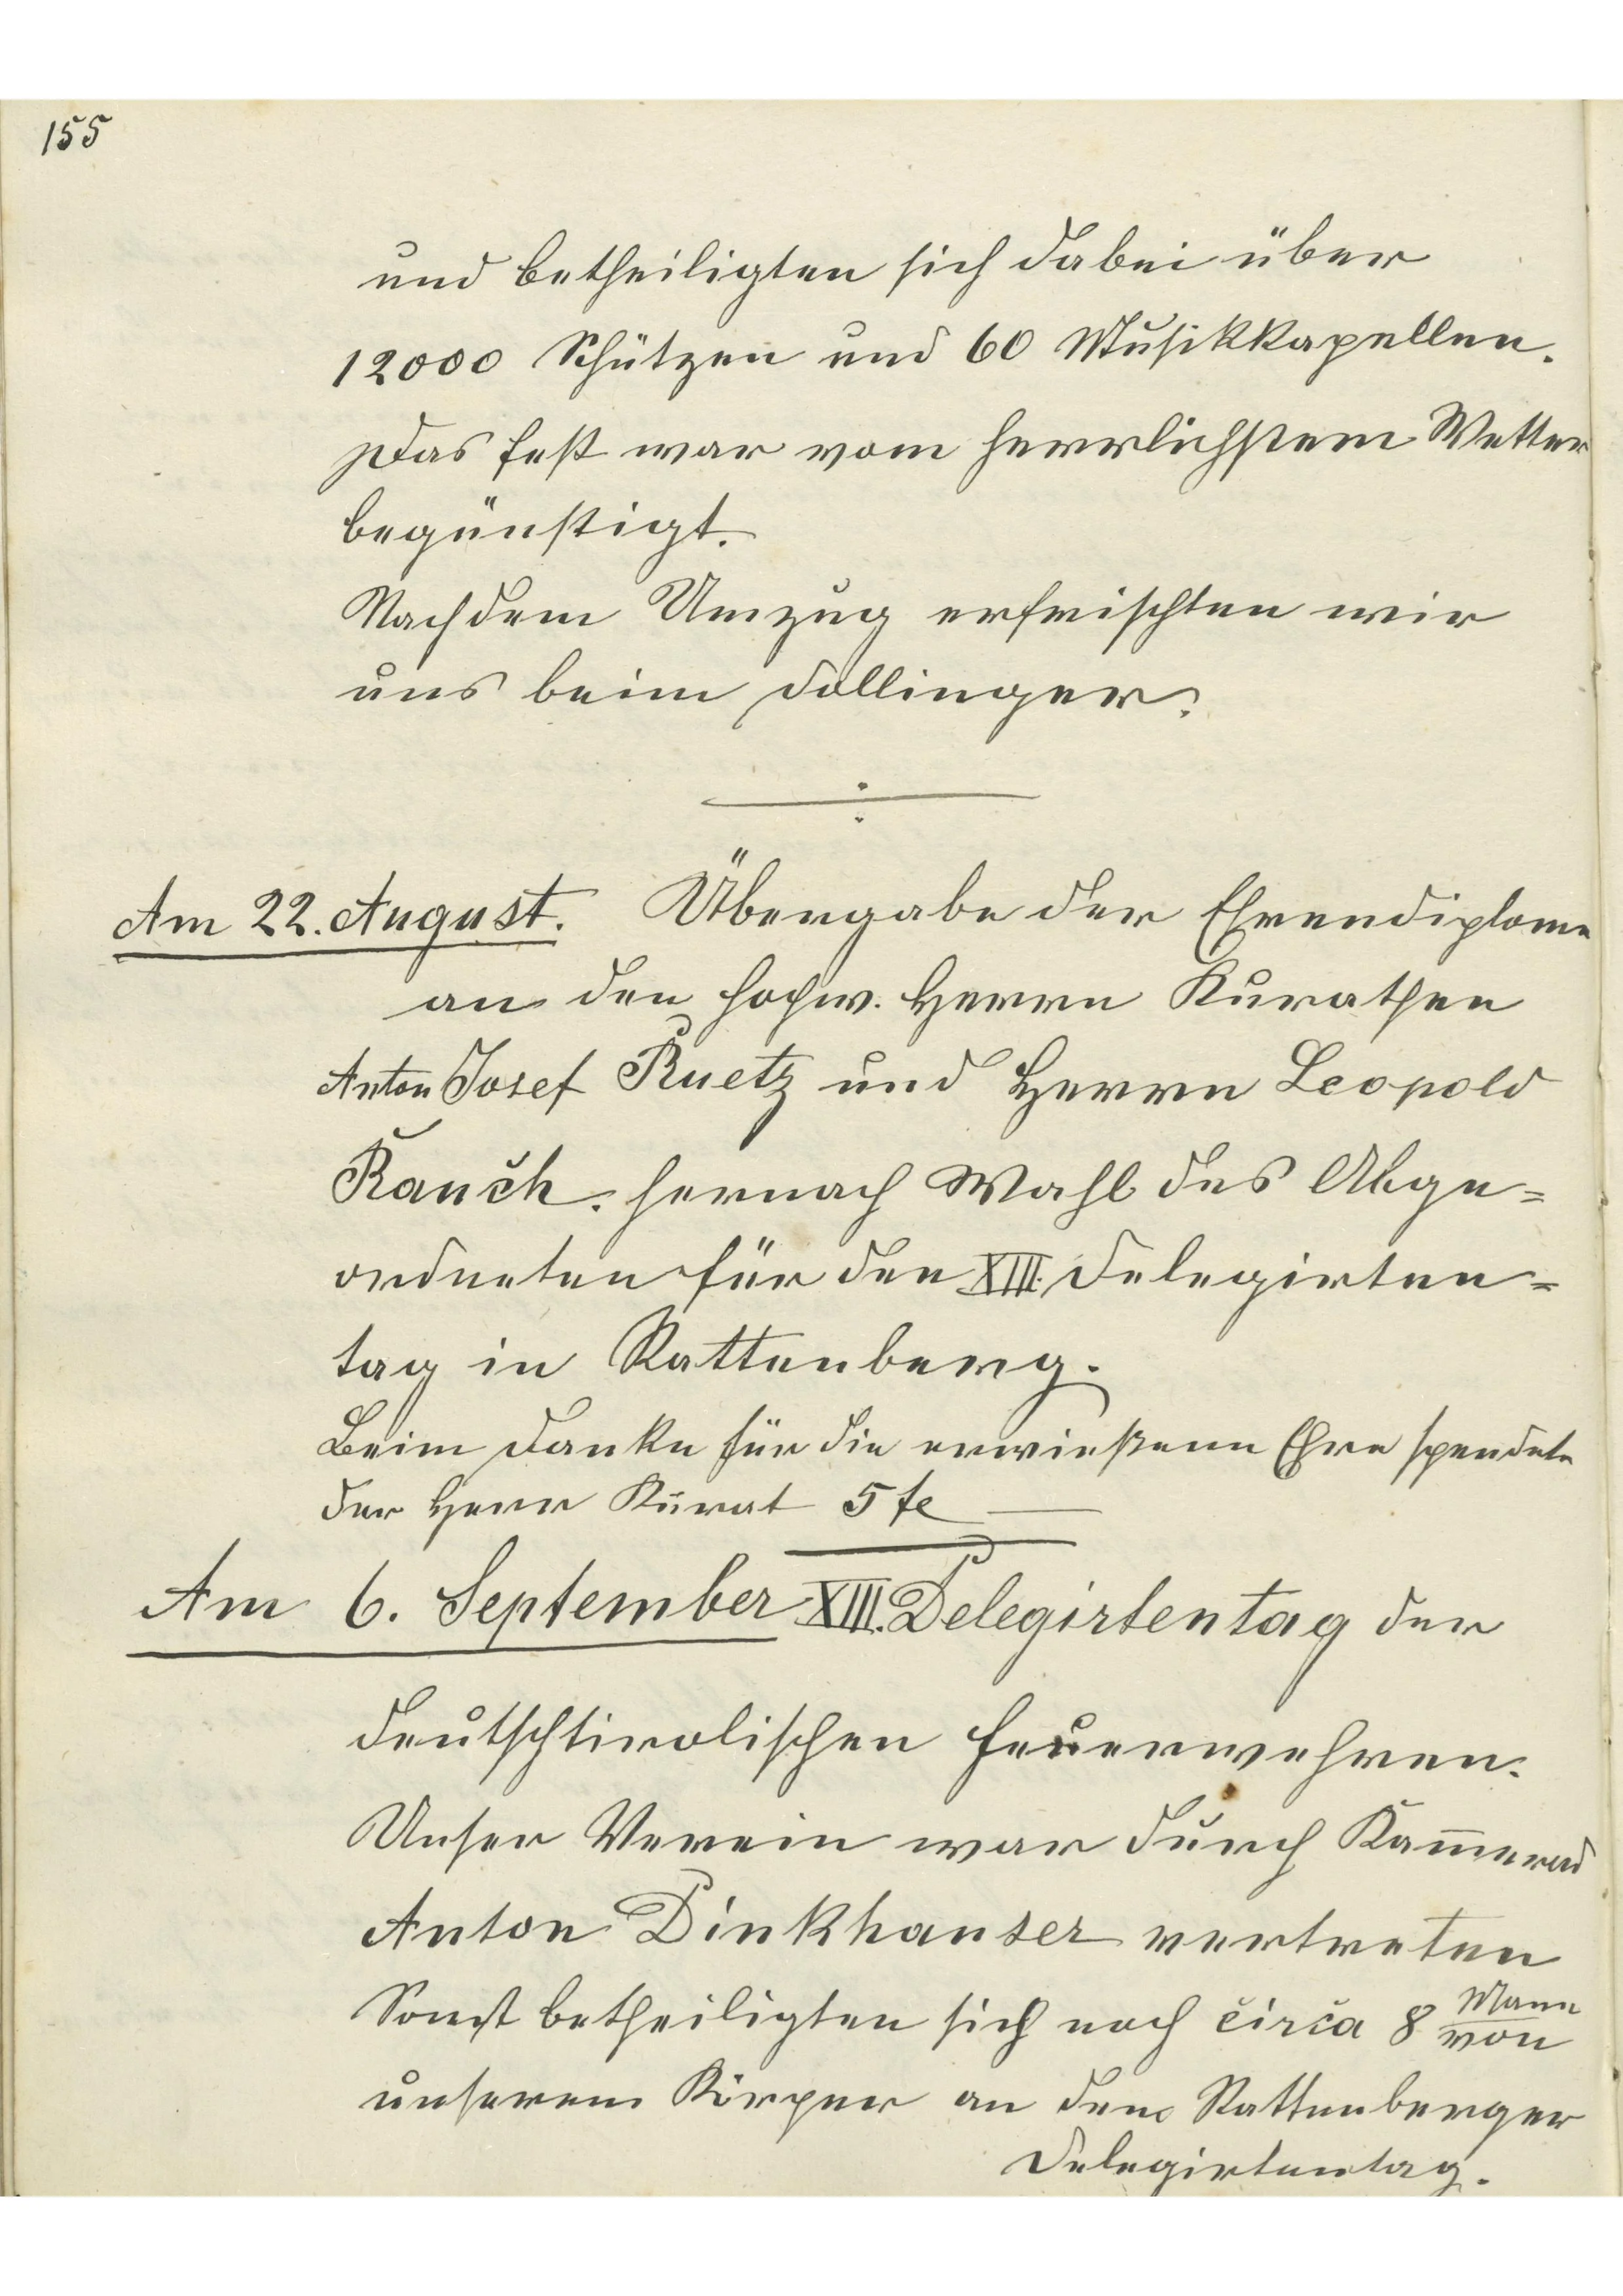 155
und betheiligten sich dabei über
12000 Schützen und 60 Musikkapellen.
Das Fest war vom herrlichstem Wetter
begünstigt.
Nach dem Umzug erfrischten wir
uns beim Dollinger.
Am 22. August. Übergabe der Ehrendiplome
an den hochw. Herrn Kurathen
Anton Josef Ruetz und Herrn Leopold
Rauch. hernach Wahl des Abge=
ordneten für den XIII. Delegirten=
tag in Rattenberg.
Beim Danke für die erwießene Ehre spendete
der Herr Kurat 5 fl
Am 6. September XIII. Delegirtentag der
deutschtirolischen Feuerwehren.
Unser Verein war durch Kam̄erad
Anton Dinkhauser vertreten
Sonst betheiligten sich noch circa 8 Mann von
unserem Körper an dem Rattenberger
Delegirtentag.